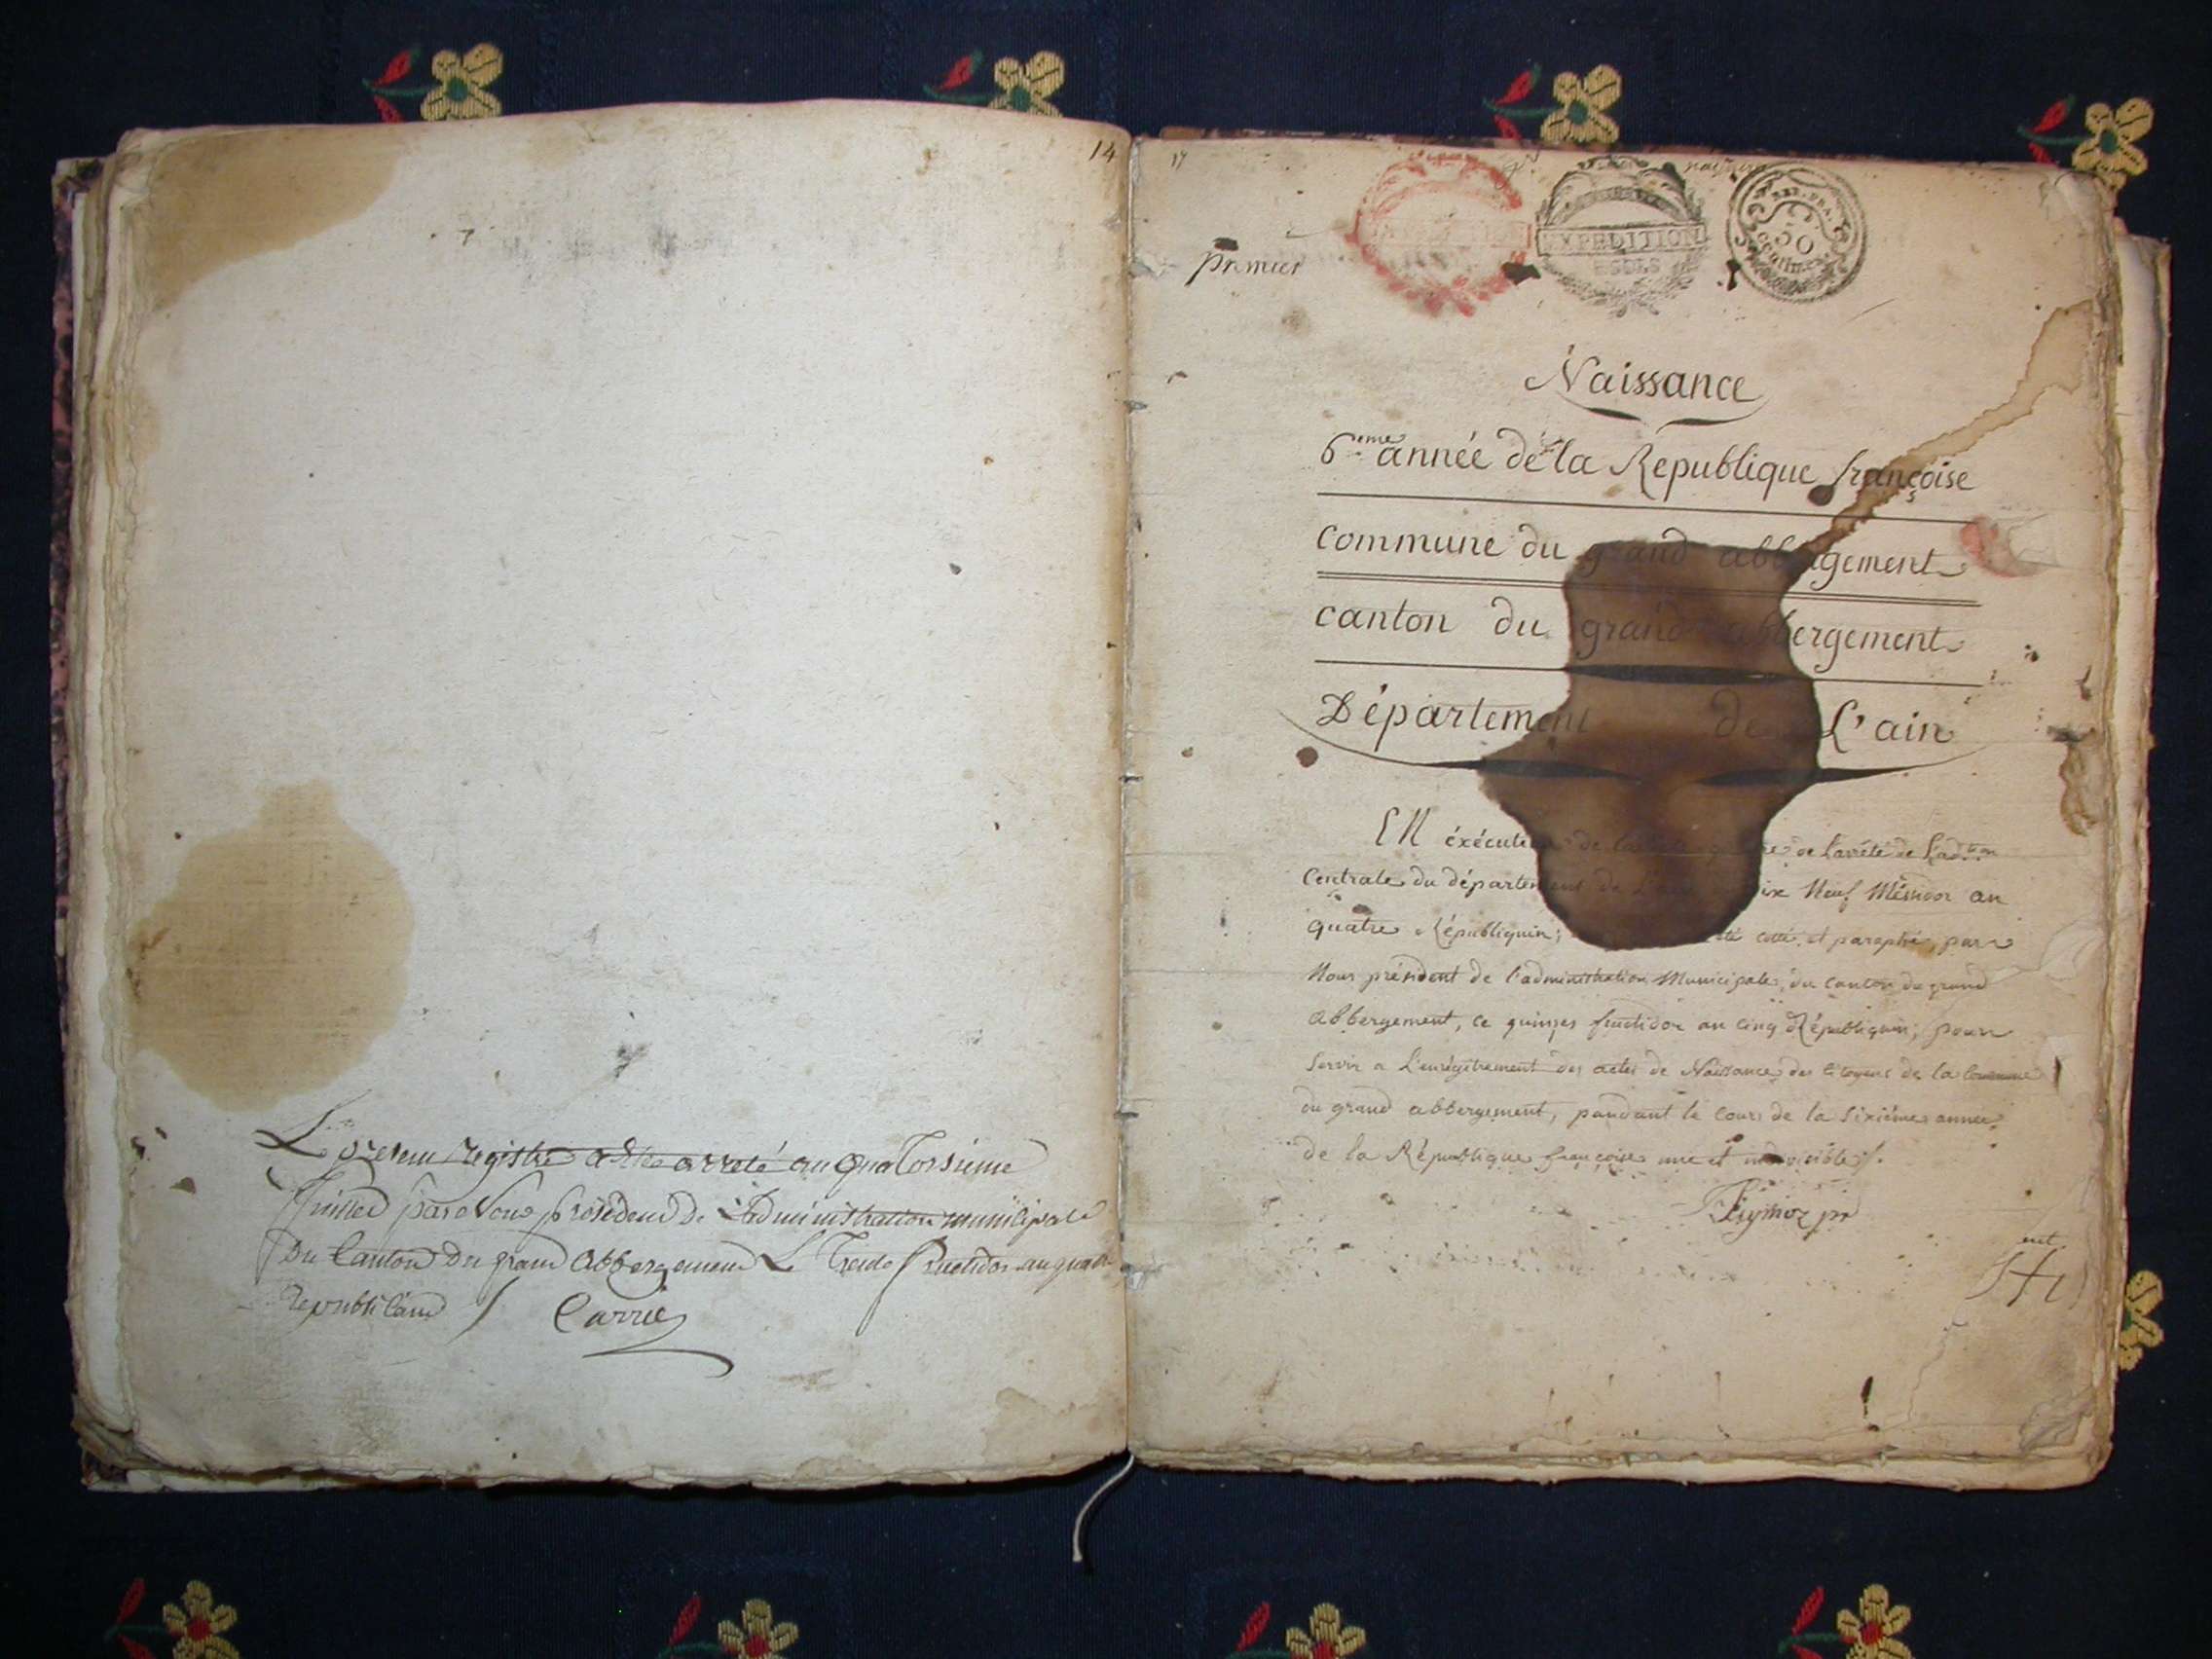 14
Le present registre a été arreté au quatorsieme
feuillet par Nous président de L'administration municipale
Du Canton Du grand abbergement Le trente fructidor an quatre
Republicain / Carrier
17
premier
EXPEDITION
REP. FRA.
50
Centimes
Naissance
6eme année de la Republique françoise
commune du grand abbergement
canton du grand abbergement
Département de L'ain
En éxécution de de l'arrêté de L'ad.tion
Centrale du département de L'ain Neuf Messidor an
quatre Républiquin; été cotté, et paraphé, par
Nous président de l'administration Municipale, du canton du grand
abbergement, ce quinzes fructidor an cinq Républiquin, pour
servir a L'enrégitrement des actes de Naissance, des citoyens de la Commune
du grand abbergement, pandant le cours de la sixiéme année
de la République françoise une et indivisible /.